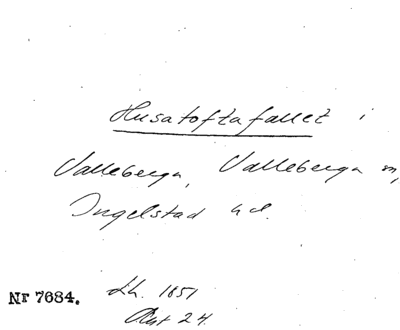 Husatoftafallet i
Valleberga, Valleberga sn,
Ingelstad hd.
Nr 7684. Lh. 1851
Akt 24